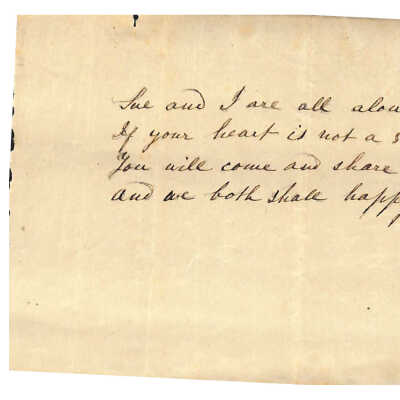 Sue and I are all alon
If your heart is not a s
You will come and share
and we both shall happ